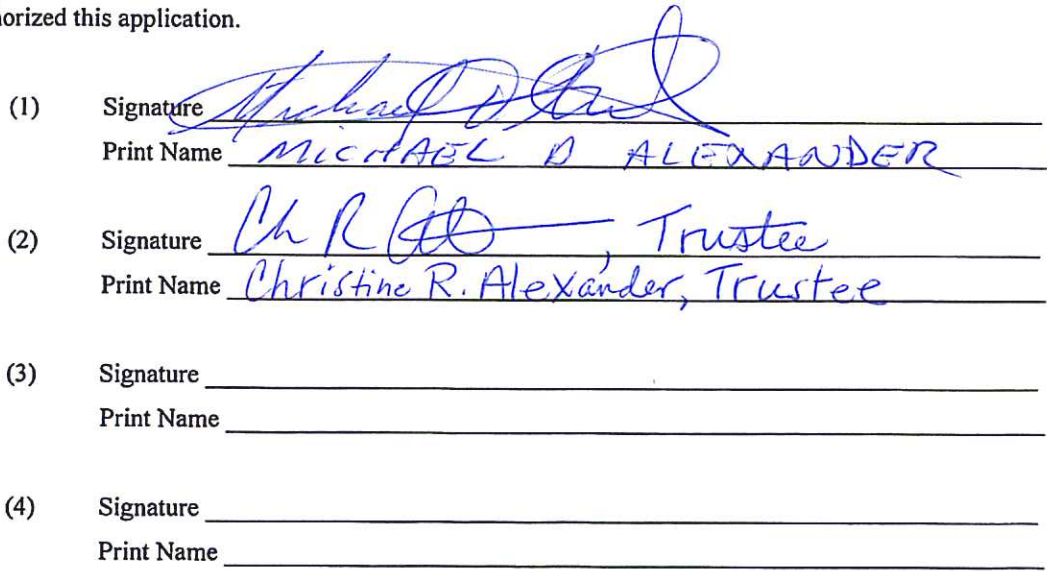 orized this application.
(1) Signature Michael D
Print Name MICHAEL D ALEXANDER
(2) Signature Ch R , Trustee
Print Name Christine R. Alexander, Trustee
(3) Signature
Print Name
(4) Signature
Print Name